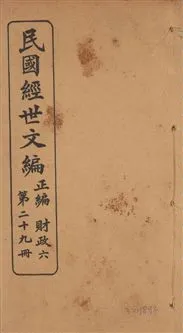 民國經世文編
正編 財政六
第二十九冊